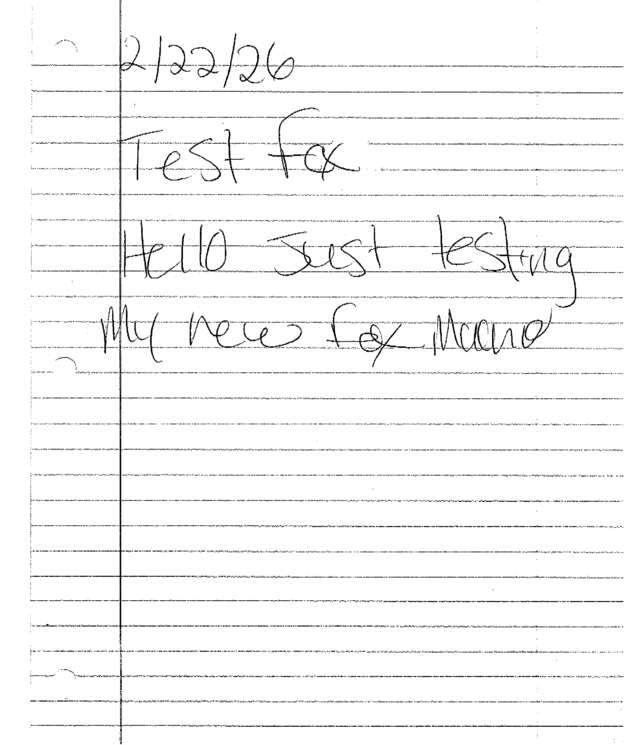 2/22/26
Test fax
Hello Just testing
My new fax